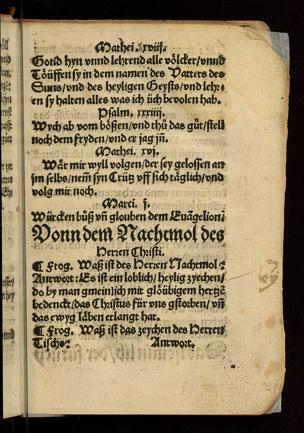 Mathei. xviij.
Gond hyn vnnd lehrend alle völcker/vnnd
Töüffen sy in dem namen des Vatters des
Suns/vnd des heyligen Geysts/vnd lehr-
en sy halten alles was ich üch bevolen hab.
Psalm. xxxiij.
Wych ab vom bößen/vnd thů das gůt/stell
noch dem fryden/vnd er jag jn̄.
Mathei. xvj.
Wår mir wyll volgen/der sey gelossen an
jm selbs/nem̄ syn Crütz vff sich täglich/vnd
volg mir noch.
Marci. j.
Würcken bůß vn̄ glouben dem Euãgelion:
Vonn dem Nachtmol des
Herren Christi.
¶ Frog. Waß ist des Herren Nachmol:
Antwort: Es ist ein loblich/heylig zeychen/
do by man gmeinlich mit glöübigem hertzē
bedenckt/das Christus für vns gstorben/vn̄
das ewyg låben erlangt hat.
¶ Frog. Waß ist das zeychen des Herren
Tischs: Antwort.